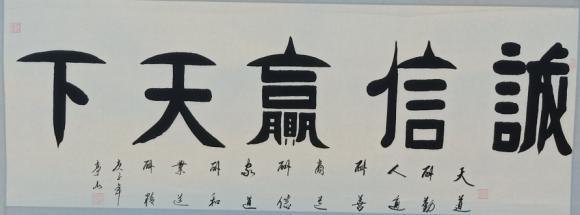 誠信贏天下
天道
酬勤
人道
酬善
商道
酬信
家道
酬和
業道
酬精
庚子年